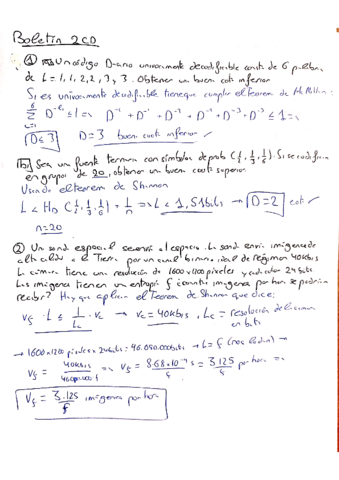 Boletín 2CD
① Un código D-ario univocamente decodificable consta de 6 palabras
de L = 1, 1, 2, 2, 3 y 3. Obtener un buen cota inferior
Si es univocamente decodificable tiene que cumplir el teorema de McMillan:
6 Σ i=1 D^-Li ≤ 1 => D^-1 + D^-1 + D^-2 + D^-2 + D^-3 + D^-3 ≤ 1 =>
D ≤ 3 D = 3 buen cota inferior ✓
Sea un fuente ternaria con símbolos de prob (1/2, 1/3, 1/6). Si se codifica
en grupos de 20, obtener un buen cota superior
Usando el teorema de Shannon
L < H_D (1/2, 1/3, 1/6) + 1/n => L < 1,51 bits -> D = 2 cota ✓
n = 20
② Un sonda espacial se envía al espacio. La sonda envía imágenes de
alta calidad a la Tierra por un canal binario, ideal de régimen 40 kbis
La cámara tiene una resolución de 1600x1200 píxeles y cada color 24 bits
Las imágenes tienen un entropía f ¿cuántas imágenes por hora se podrían
recibir? Hay que aplicar el Teorema de Shannon que dice:
V_f · L ≤ 1/L_c V_c -> V_c = 40 kbis, L_c = resolución de la cámara
en bits
-> 1600 x 1200 píxeles x 24 bits = 46.080.000 bits -> L = f
V_f = 40 kbis / 46080000 f => V_f = 8,68·10^-4 / f s = 3.125 / f por hora =>
V_f = 3.125 / f imágenes por hora